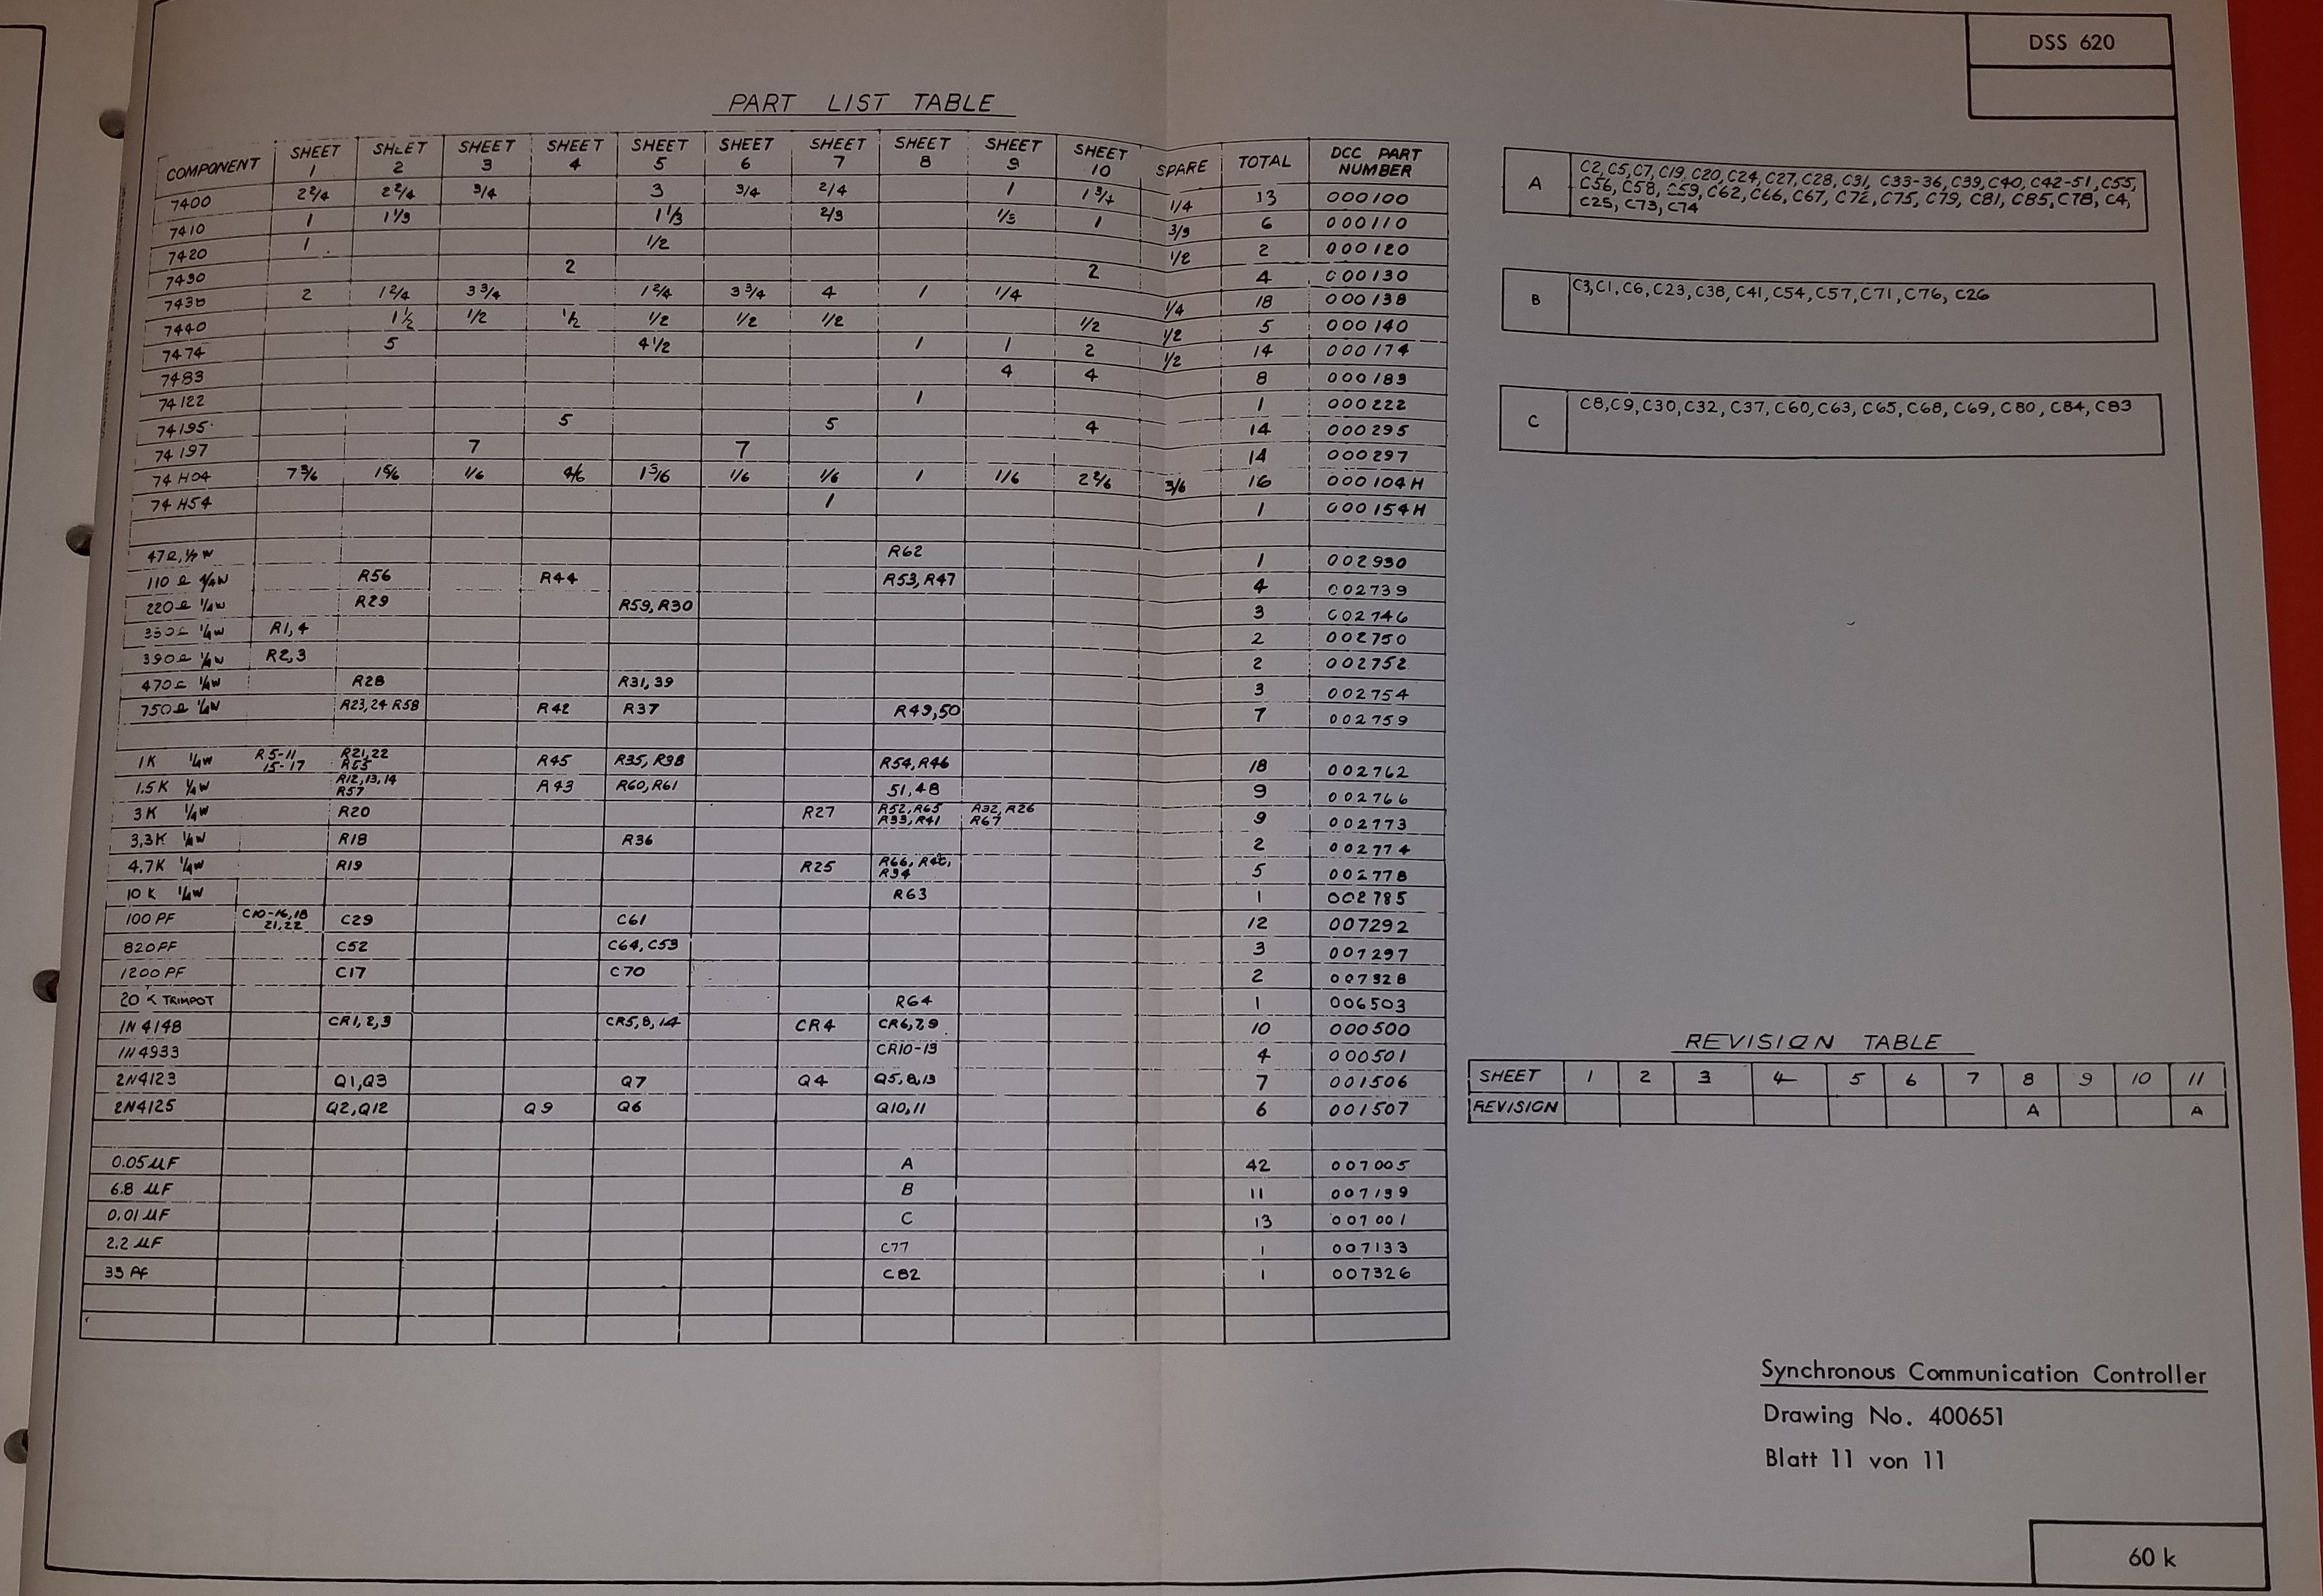 DSS 620
PART LIST TABLE
COMPONENT SHEET 1 SHEET 2 SHEET 3 SHEET 4 SHEET 5 SHEET 6 SHEET 7 SHEET 8 SHEET 9 SHEET 10 SPARE TOTAL DCC PART NUMBER
7400 2 2/4 2 2/4 3/4 3 3/4 2/4 1 1 3/4 1/4 13 000100
7410 1 1 1/3 1 1/3 2/3 1/3 1 3/3 6 000110
7420 1 1/2 1/2 2 000120
7430 2 2 4 000130
7438 2 1 2/4 3 3/4 1 2/4 3 3/4 4 1 1/4 1/4 18 000138
7440 1 1/2 1/2 1/2 1/2 1/2 1/2 1/2 1/2 5 000140
7474 5 4 1/2 1 1 2 1/2 14 000174
7483 4 4 8 000183
74122 1 1 000222
74195 5 5 4 14 000295
74197 7 7 14 000297
74H04 7 3/6 1 5/6 1/6 4/6 1 3/6 1/6 1/6 1 1/6 2 2/6 3/6 16 000104H
74H54 1 1 000154H
47Ω, 1/2 W R62 1 002930
110 Ω 1/4W R56 R44 R53, R47 4 002739
220Ω 1/4W R29 R59, R30 3 002746
330Ω 1/4W R1, 4 2 002750
390Ω 1/4W R2,3 2 002752
470Ω 1/4W R28 R31, 39 3 002754
750Ω 1/4W R23, 24 R58 R42 R37 R49,50 7 002759
1K 1/4W R5-11 15-17 R21,22 R55 R45 R35, R38 R54, R46 18 002762
1.5K 1/4W R12, 13, 14 R57 R43 R60, R61 51, 48 9 002766
3K 1/4W R20 R27 R52, R65 R33, R41 R32, R26 R67 9 002773
3,3K 1/4W R18 R36 2 002774
4.7K 1/4W R19 R25 R66, R40, R34 5 002778
10 K 1/4W R63 1 002785
100 PF C10-16,18 21,22 C29 C61 12 007292
820PF C52 C64, C53 3 007297
1200 PF C17 C70 2 007328
20 K TRIMPOT R64 1 006503
1N4148 CR1, 2, 3 CR5, 8, 14 CR4 CR6,7,9 10 000500
1N4933 CR10-13 4 000501
2N4123 Q1,Q3 Q7 Q4 Q5, 8, 13 7 001506
2N4125 Q2,Q12 Q9 Q6 Q10, 11 6 001507
0.05 µF A 42 007005
6.8 µF B 11 007139
0.01 µF C 13 007001
2.2 µF C77 1 007133
33 Pf C82 1 007326
A C2, C5, C7, C19, C20, C24, C27, C28, C31, C33-36, C39, C40, C42-51, C55,
C56, C58, C59, C62, C66, C67, C72, C75, C79, C81, C85, C78, C4,
C25, C73, C74
B C3, C1, C6, C23, C38, C41, C54, C57, C71, C76, C26
C C8, C9, C30, C32, C37, C60, C63, C65, C68, C69, C80, C84, C83
REVISION TABLE
SHEET 1 2 3 4 5 6 7 8 9 10 11
REVISION A A
Synchronous Communication Controller
Drawing No. 400651
Blatt 11 von 11
60 k